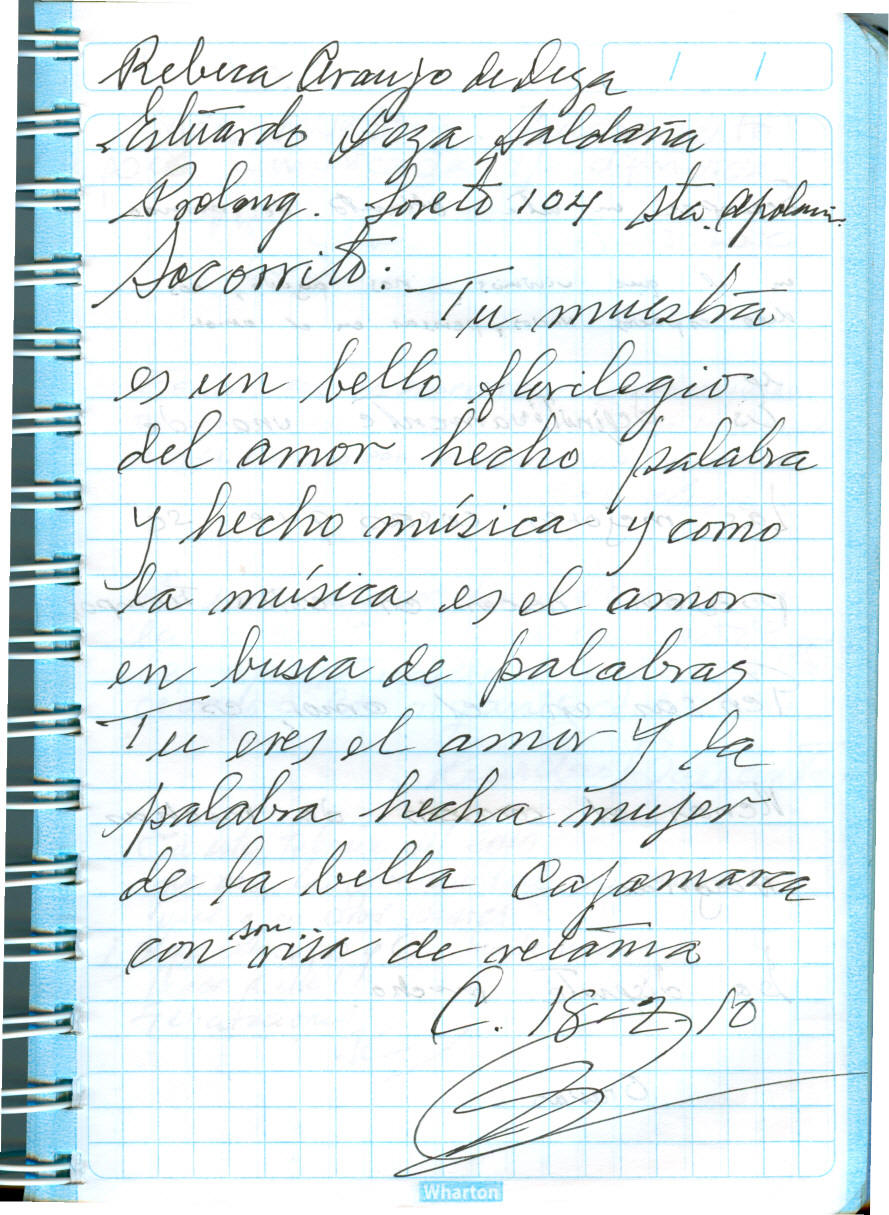 Rebeca Araujo de Deza
Estuardo Deza Saldaña
Prolong. Loreto 104 Sta. Apolonia.
Socorrito:
Tu muestra
es un bello florilegio
del amor hecho palabra
y hecho música y como
la música es el amor
en busca de palabras
Tu eres el amor y la
palabra hecha mujer
de la bella Cajamarca
con sonrisa de retama
C. 18-2-10
Wharton